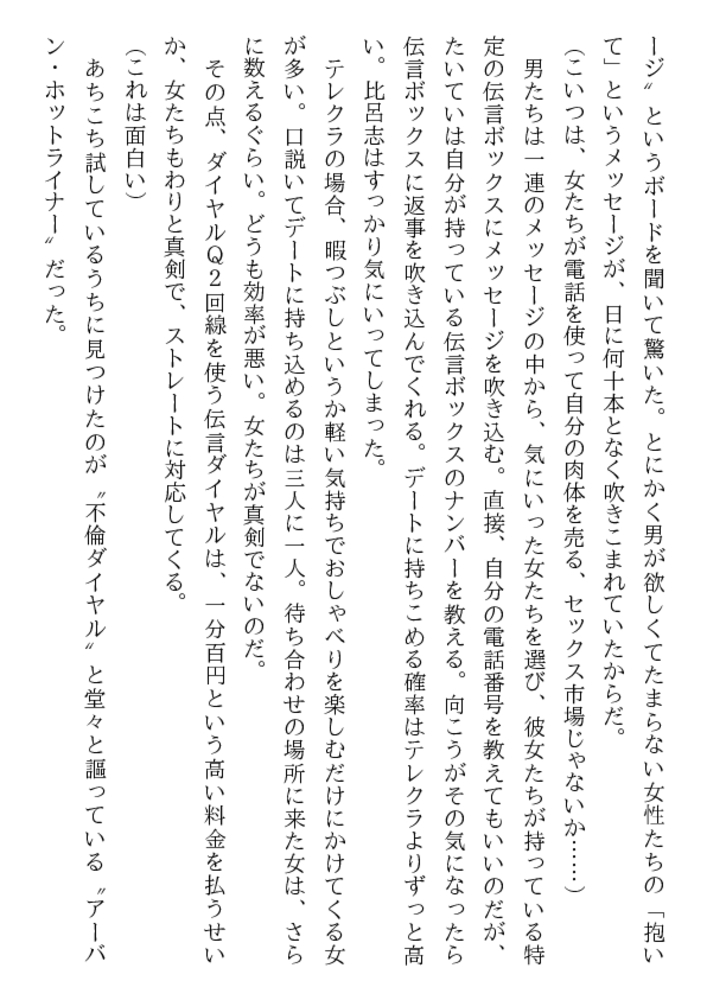 ージ〟というボードを聞いて驚いた。とにかく男が欲しくてたまらない女性たちの「抱い
て」というメッセージが、日に何十本となく吹きこまれていたからだ。
(こいつは、女たちが電話を使って自分の肉体を売る、セックス市場じゃないか……)
男たちは一連のメッセージの中から、気にいった女たちを選び、彼女たちが持っている特
定の伝言ボックスにメッセージを吹き込む。直接、自分の電話番号を教えてもいいのだが、
たいていは自分が持っている伝言ボックスのナンバーを教える。向こうがその気になったら
伝言ボックスに返事を吹き込んでくれる。デートに持ちこめる確率はテレクラよりずっと高
い。比呂志はすっかり気にいってしまった。
テレクラの場合、暇つぶしというか軽い気持ちでおしゃべりを楽しむだけにかけてくる女
が多い。口説いてデートに持ち込めるのは三人に一人。待ち合わせの場所に来た女は、さら
に数えるぐらい。どうも効率が悪い。女たちが真剣でないのだ。
その点、ダイヤルQ2回線を使う伝言ダイヤルは、一分百円という高い料金を払うせい
か、女たちもわりと真剣で、ストレートに対応してくる。
(これは面白い)
あちこち試しているうちに見つけたのが〝不倫ダイヤル〟と堂々と謳っている〝アーバ
ン・ホットライナー〟だった。